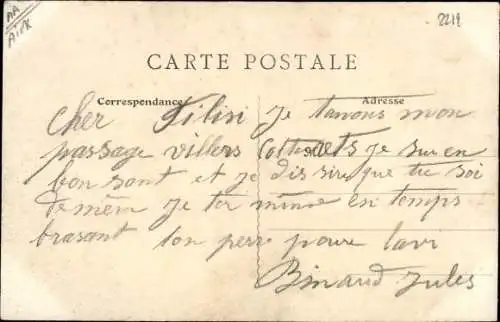 2212
CARTE POSTALE
Correspondance
Adresse
cher Filisi je tanons mon
passage villers Cotterets je sur en
bon sant et je dissire que tu soi
de mêm je ter mine en temps
brasant ton perr poure lavi
Binaud Jules